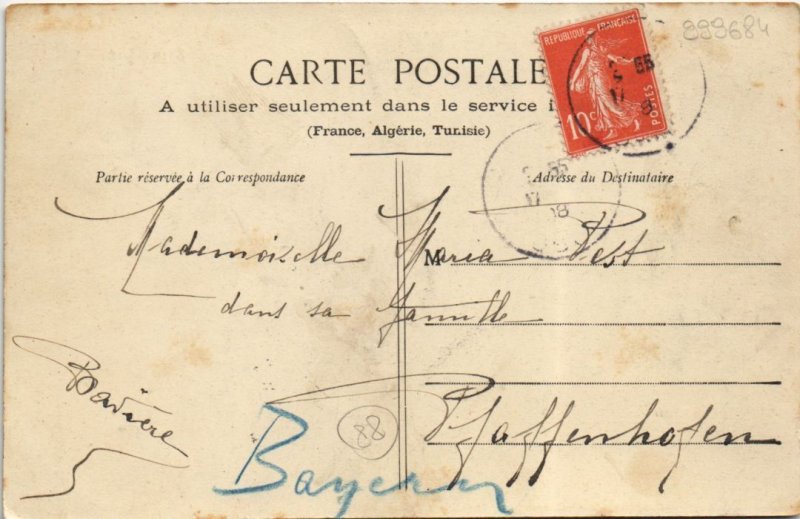 999684
CARTE POSTALE
A utiliser seulement dans le service i
(France, Algérie, Tunisie)
REPUBLIQUE FRANÇAISE
10c POSTES
Partie réservée à la Correspondance
Adresse du Destinataire
Mademoiselle M Maria Pest
dans sa famille
Bavière
Pfaffenhofen
88
Bayern